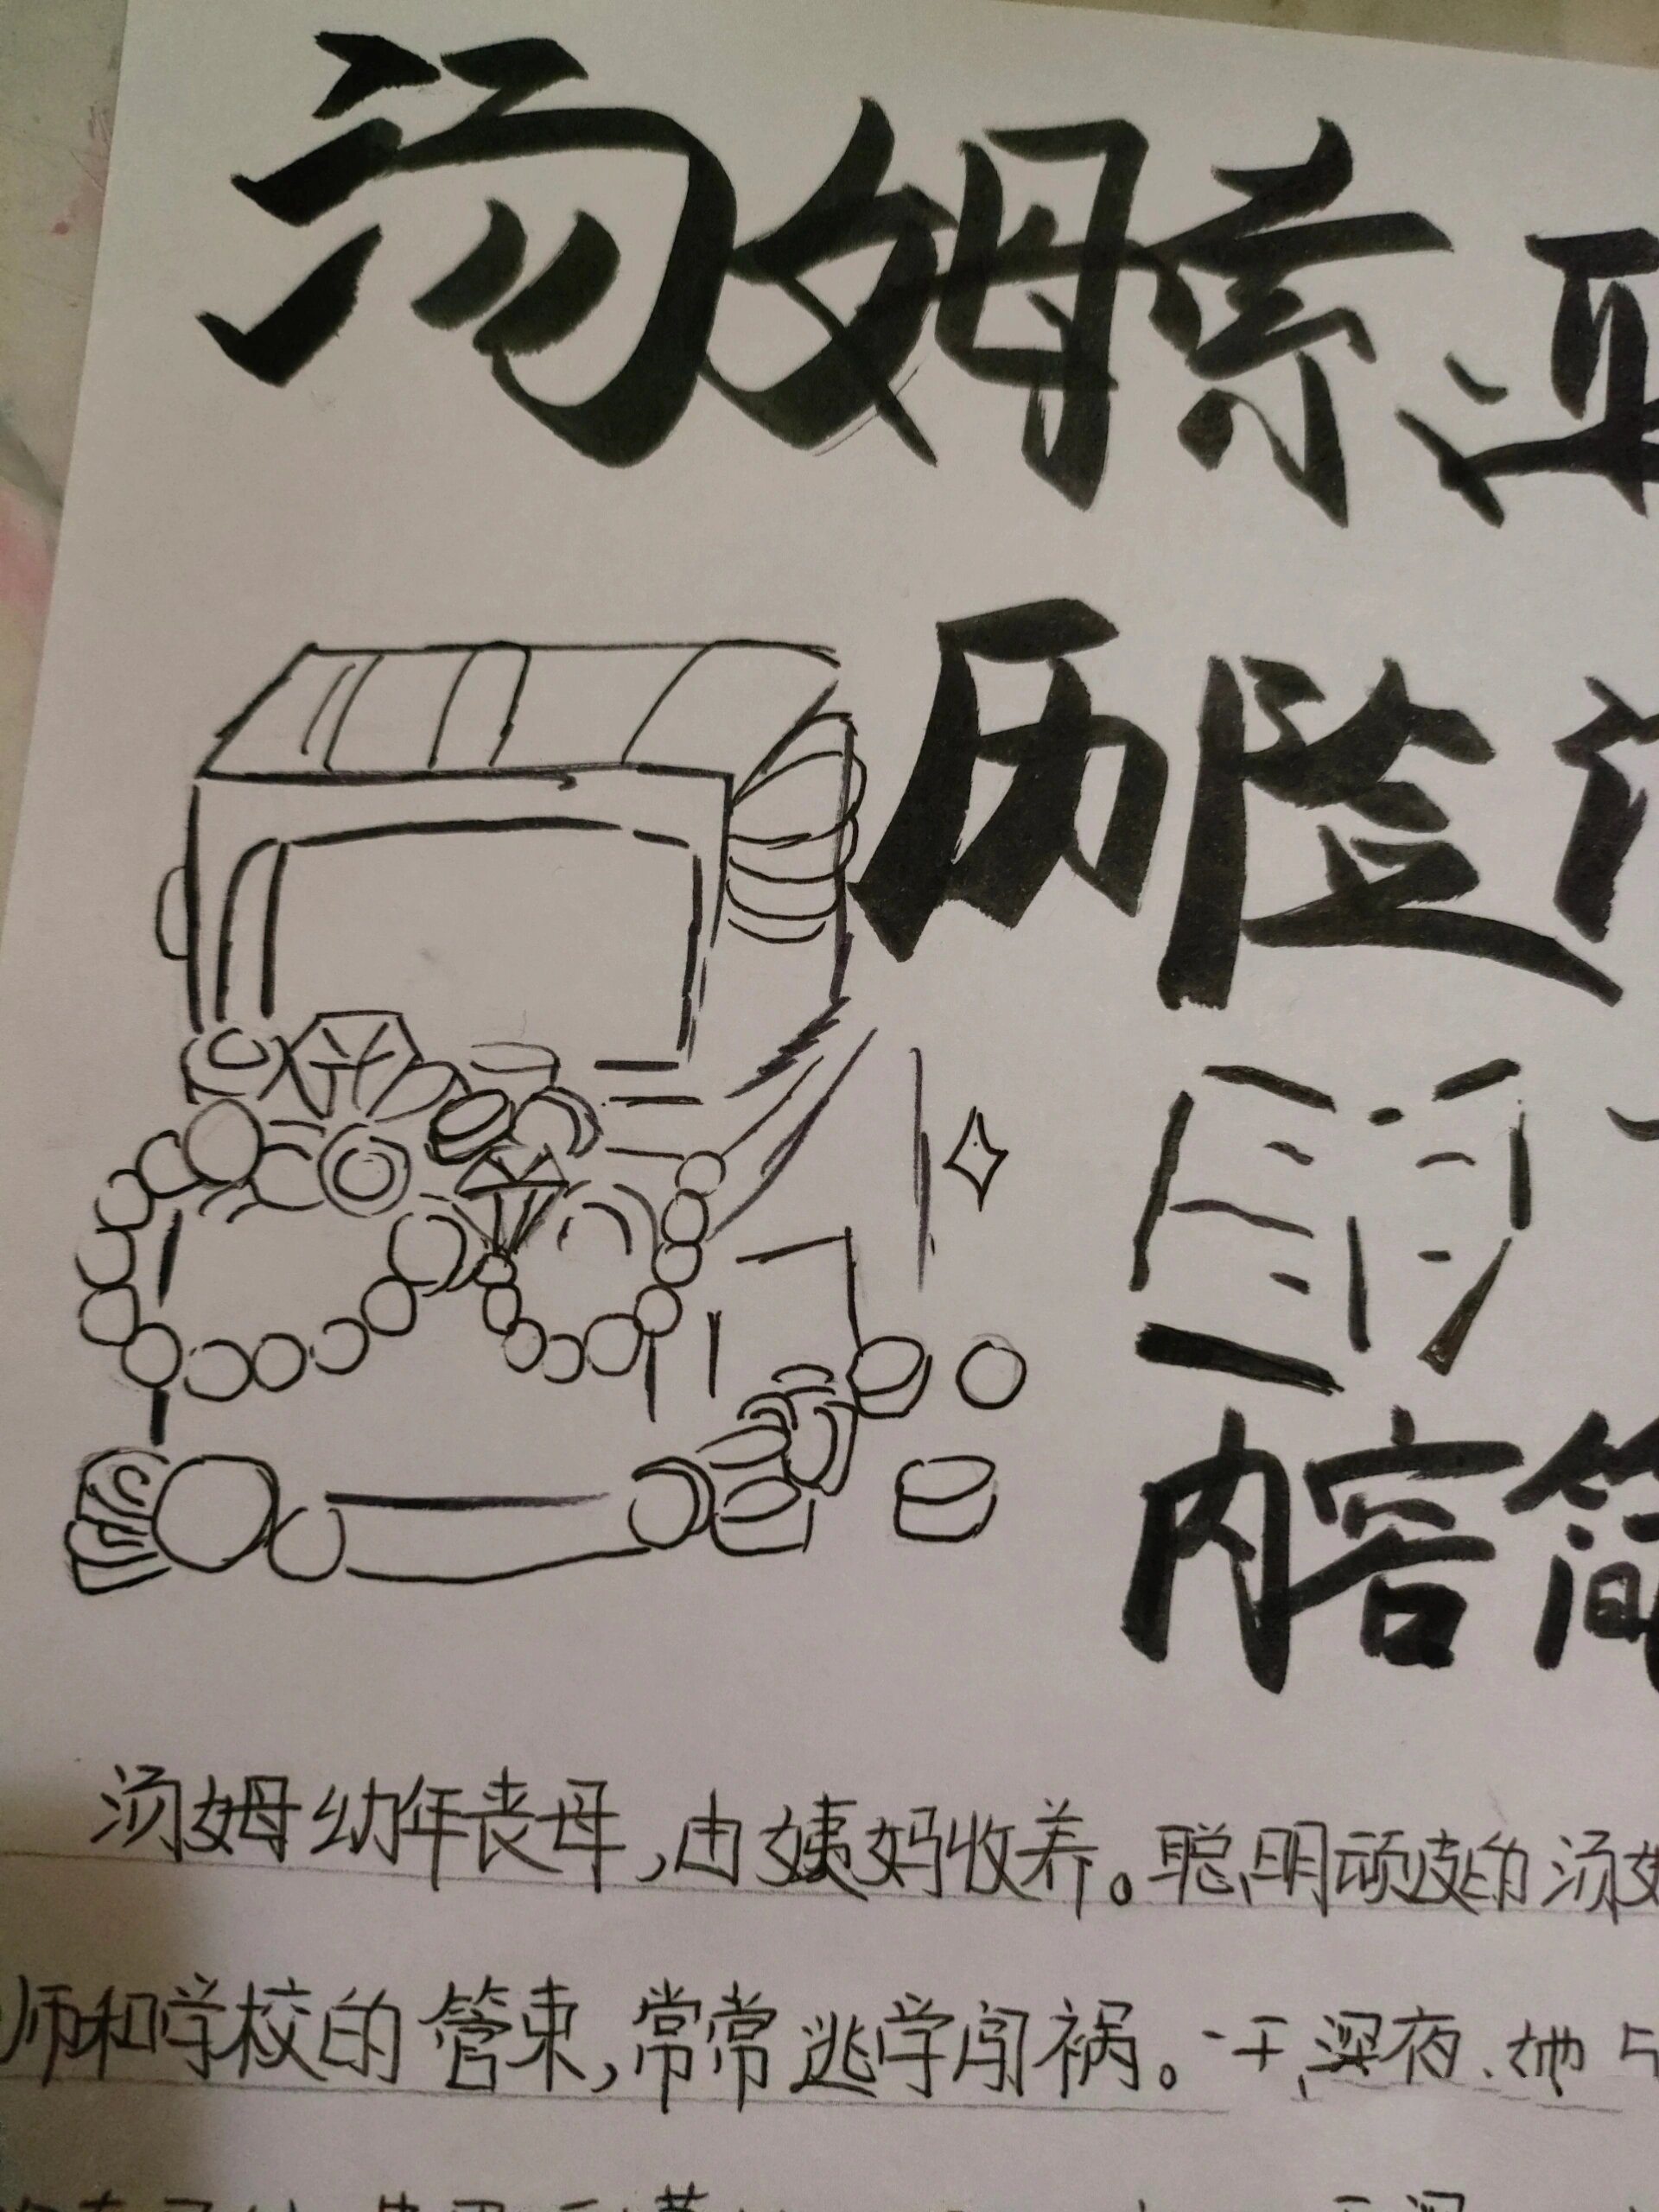 汤姆索亚
历险
内容简
汤姆幼年丧母,由姨妈收养。聪明顽皮的汤姆
师和学校的管束,常常逃学闯祸。一天深夜,她与